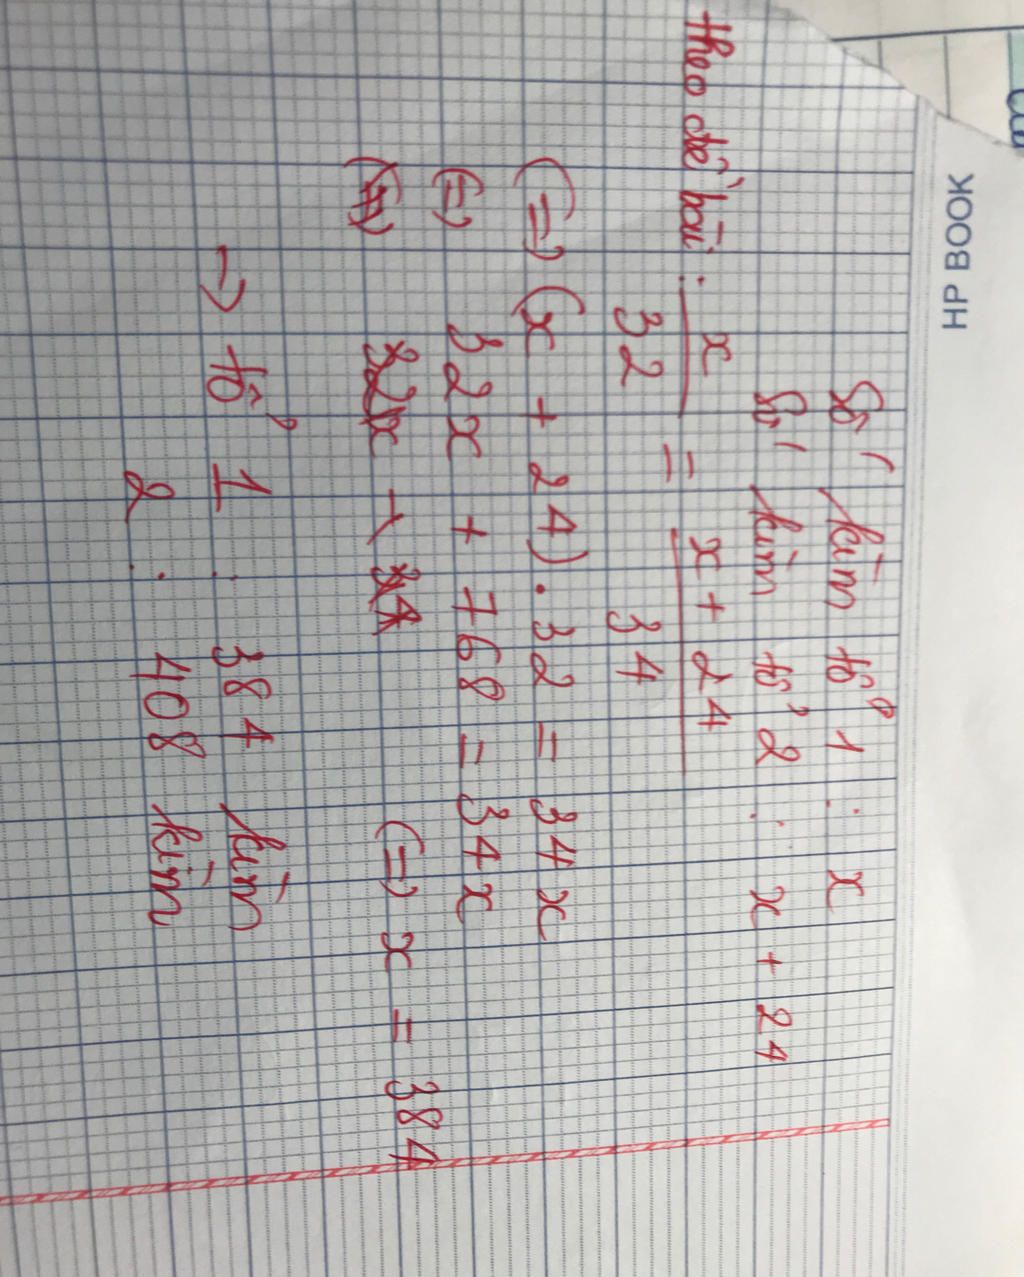 HP BOOK
Số kim tổ 1 : x
Số kim tổ 2 : x + 24
theo đề bài : x/32 = x + 24/34
(=) (x + 24).32 = 34x
(=) 32x + 768 = 34x
(=) x = 384
-> tổ 1 : 384 kim
2 : 408 kim